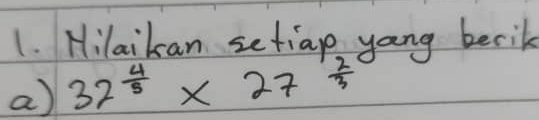 1. Nilaikan setiap yang berik
a) 32^{4/5} × 27^{2/3}